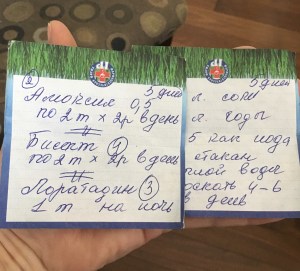 ② 5 дней
Амоксил 0,5
по 2 т х 2р в день
Бисепт ①
по 2 т х 2р в день
Лоратадин ③
1 т на ночь
5 дней
л. соли
л. соды
5 кап йода
стакан
лой воды
4-6
в день